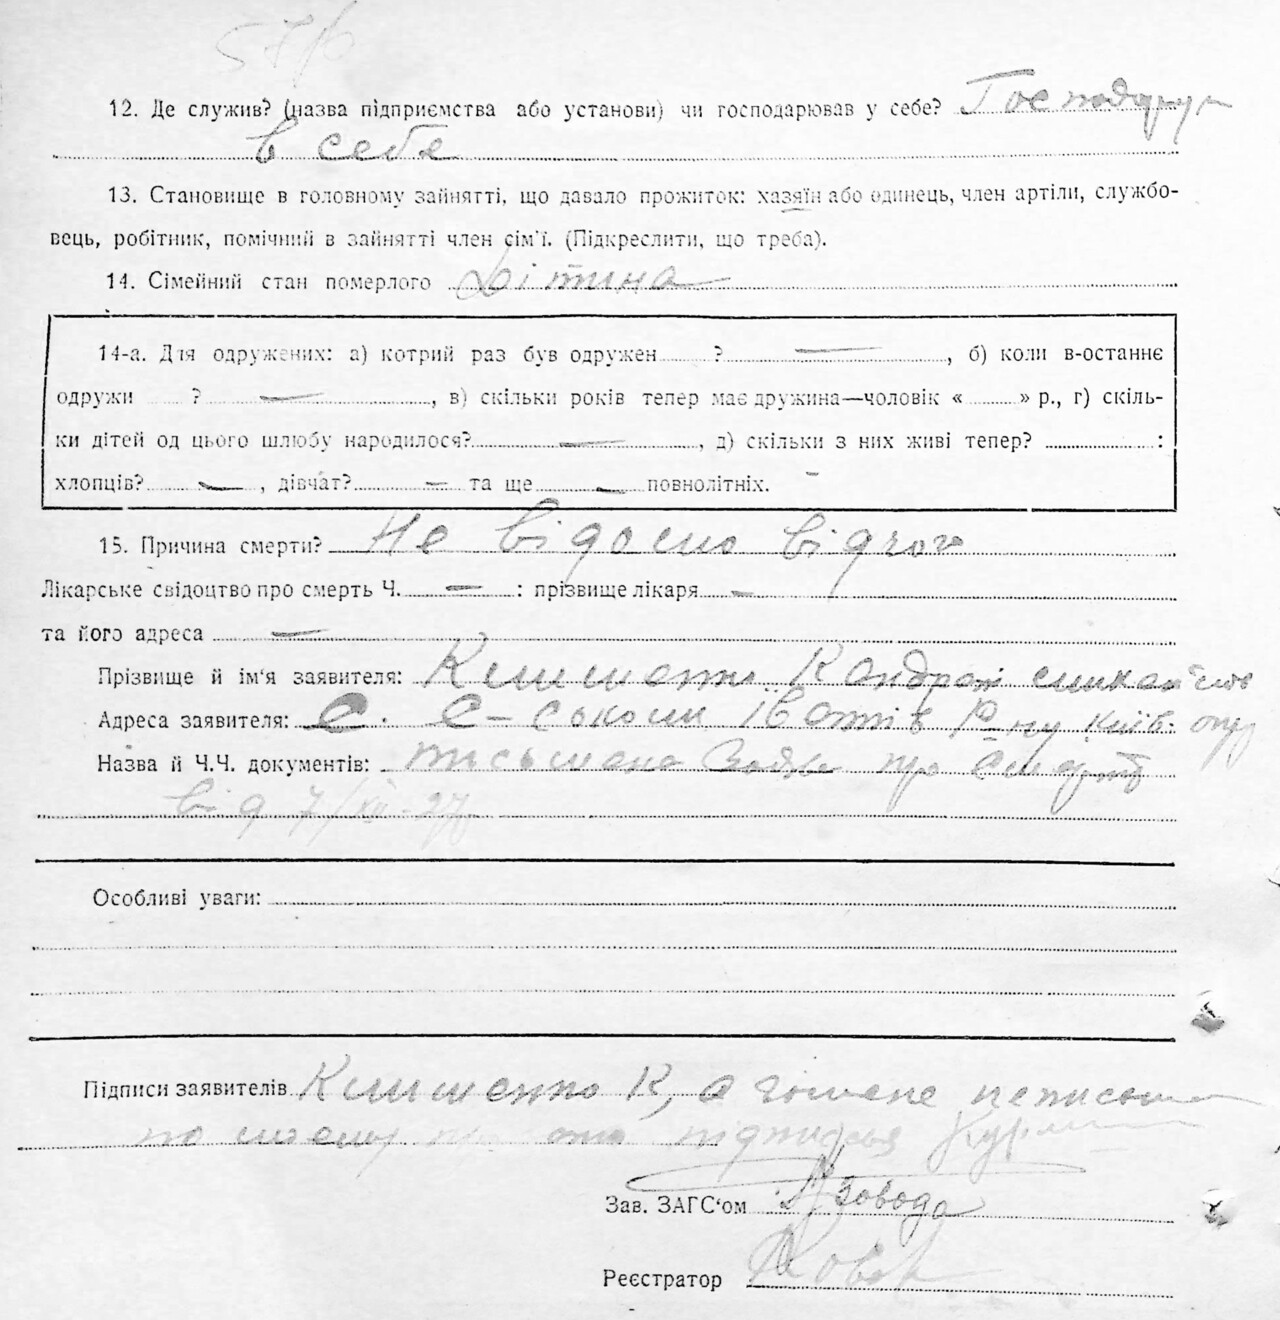 57/6
12. Де служив? (назва підприємства або установи) чи господарював у себе? Господарує
в себе
13. Становище в головному зайнятті, що давало прожиток: хазяїн або одинець, член артіли, службо-
вець, робітник, помічний в зайнятті член сім'ї. (Підкреслити, що треба).
14. Сімейний стан померлого Дітина
14-а. Для одружених: а) котрий раз був одружен ? —, б) коли в-останнє
одружи ? —, в) скільки років тепер має дружина—чоловік « » р., г) скіль-
ки дітей од цього шлюбу народилося? —, д) скільки з них живі тепер? :
хлопців? —, дівчат? — та ще — повнолітніх.
15. Причина смерти? Не відомо від чого
Лікарське свідоцтво про смерть Ч. — : прізвище лікаря —
та його адреса —
Прізвище й ім'я заявителя: Кондрат
Адреса заявителя: С. Р-ну Київ. окр
Назва й Ч.Ч. документів: письмена заява про смерть
від 7/XII-27р
Особливі уваги:
Підписи заявителів К, а
по підписався
Зав. ЗАГС'ом
Реєстратор